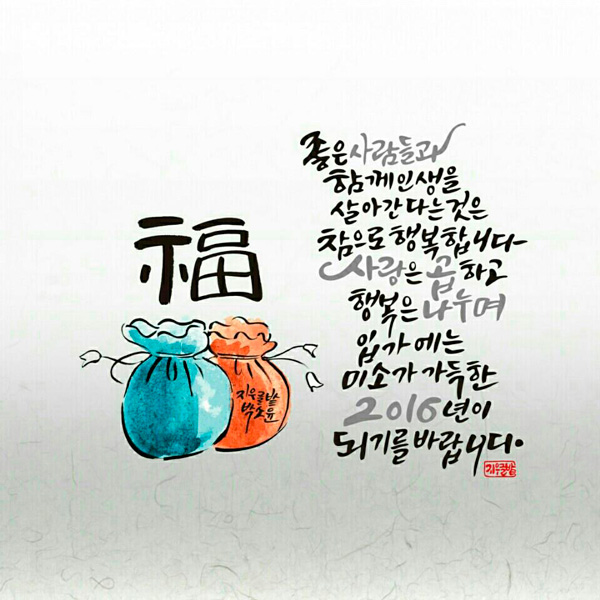 福
지우글밭
박소윤
좋은사람들과
함께인생을
살아간다는것은
참으로행복합니다
사랑은곱하고
행복은나누며
입가에는
미소가가득한
2016년이
되기를바랍니다.